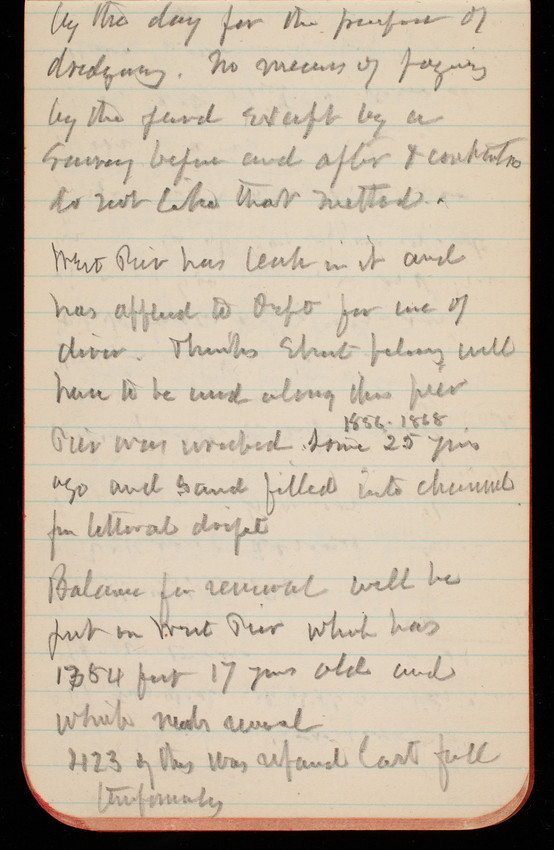 by the day for the purpose of
dredging. No means of paying
by the yard except by a
survey before and after & contractors
do not like that method.
West Pier has leak in it and
has applied to Dept for use of
diver. Thinks Sheet piling will
have to be used along this pier
1856-1868
Pier was wrecked some 25 years
ago and sand filled into channel
from littoral drift
Balance for renewal will be
put on West Pier which has
1354 feet 17 years old and
which needs renewal
423 of this was repaired last fall
temporarily